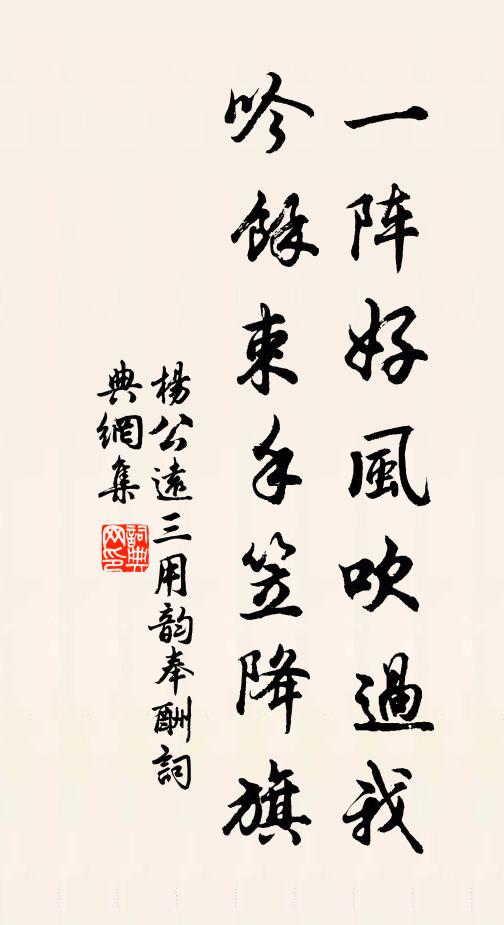 一阵好風吹過我
吟餘束手笠降旗
楊公遠三用韵奉酬詞
典網集
詞典
网印